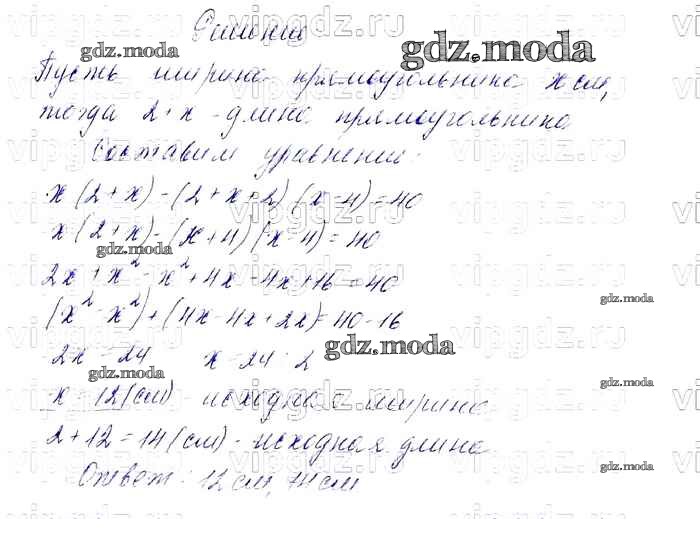 Решение
Пусть ширина прямоугольника x см,
тогда 2+x - длина прямоугольника
Составим уравнение:
x(2+x)-(2+x+2)(x-4)=40
x(2+x)-(x+4)(x-4)=40
2x+x²-x²+4x-4x+16=40
(x²-x²)+(4x-4x+2x)=40-16
2x=24 x=24:2
x=12(см) - исходная ширина
2+12=14(см) - исходная длина
Ответ: 12 см, 14 см
gdz.moda
gdz.moda
gdz.moda
gdz.moda
gdz.moda
gdz.moda
gdz.moda
gdz.moda
vipgdz.ru